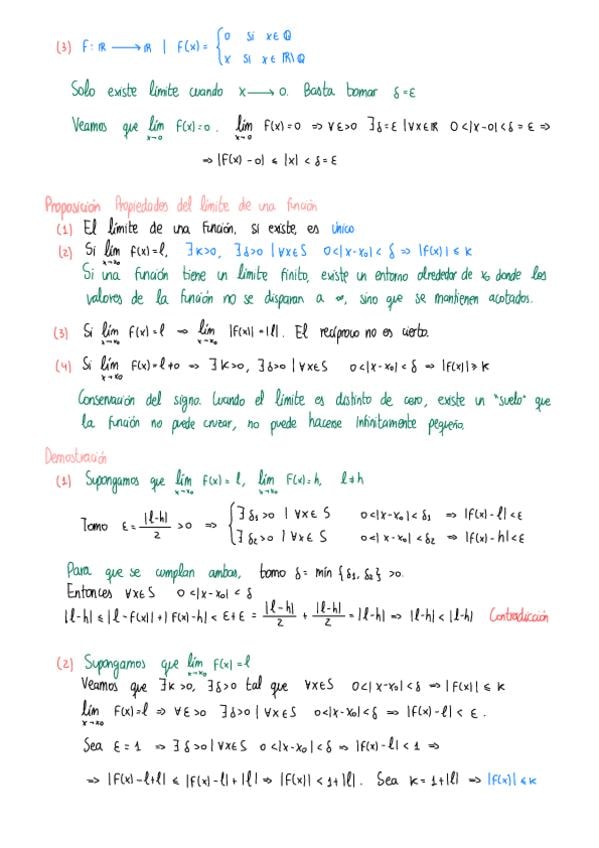 (3) F: ℝ ⟶ ℝ | F(x) = { 0 si x ∈ ℚ
x si x ∈ ℝ\ℚ
Solo existe límite cuando x ⟶ 0. Basta tomar δ = ε
Veamos que lím x→0 F(x) = 0. lím x→0 F(x) = 0 ⇒ ∀ε>0 ∃δ=ε | ∀x∈ℝ 0<|x-0|<δ=ε ⇒
⇒ |F(x)-0| ≤ |x| < δ = ε
Proposición Propiedades del límite de una función
(1) El límite de una función, si existe, es único
(2) Si lím x→x₀ F(x) = l, ∃k>0, ∃δ>0 | ∀x∈S 0<|x-x₀|<δ ⇒ |F(x)| ≤ k
Si una función tiene un límite finito, existe un entorno alrededor de x₀ donde los
valores de la función no se disparan a ∞, sino que se mantienen acotados.
(3) Si lím x→x₀ F(x) = l ⇒ lím x→x₀ |F(x)| = |l|. El recíproco no es cierto.
(4) Si lím x→x₀ F(x) = l ≠ 0 ⇒ ∃k>0, ∃δ>0 | ∀x∈S 0<|x-x₀|<δ ⇒ |F(x)| ≥ k
Conservación del signo. Cuando el límite es distinto de cero, existe un "suelo" que
la función no puede cruzar, no puede hacerse infinitamente pequeña.
Demostración
(1) Supongamos que lím x→x₀ F(x) = l, lím x→x₀ F(x) = h, l ≠ h
Tomo ε = |l-h|/2 > 0 ⇒ { ∃δ₁>0 | ∀x∈S 0<|x-x₀|<δ₁ ⇒ |F(x)-l|<ε
∃δ₂>0 | ∀x∈S 0<|x-x₀|<δ₂ ⇒ |F(x)-h|<ε
Para que se cumplan ambas, tomo δ = mín {δ₁, δ₂} > 0.
Entonces ∀x∈S 0<|x-x₀|<δ
|l-h| ≤ |l-F(x)| + |F(x)-h| < ε+ε = |l-h|/2 + |l-h|/2 = |l-h| ⇒ |l-h| < |l-h| Contradicción
(2) Supongamos que lím x→x₀ F(x) = l
Veamos que ∃k>0, ∃δ>0 tal que ∀x∈S 0<|x-x₀|<δ ⇒ |F(x)| ≤ k
lím x→x₀ F(x) = l ⇒ ∀ε>0 ∃δ>0 | ∀x∈S 0<|x-x₀|<δ ⇒ |F(x)-l| < ε.
Sea ε = 1 ⇒ ∃δ>0 | ∀x∈S 0<|x-x₀|<δ ⇒ |F(x)-l| < 1 ⇒
⇒ |F(x)-l+l| ≤ |F(x)-l| + |l| ⇒ |F(x)| < 1+|l|. Sea k = 1+|l| ⇒ |F(x)| ≤ k